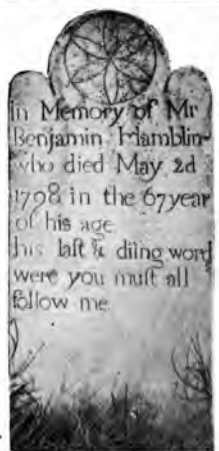 In Memory of Mr
Benjamin Hamblin
who died May 2d
1798 in the 67 year
of his age
his laſt & diing word
were you muſt all
follow me